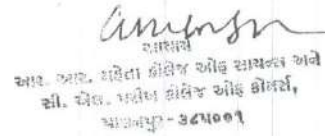 આચાર્ય
આર. આર. મહેતા કોલેજ ઓફ સાયન્સ અને
સી. એલ. પરીખ કોલેજ ઓફ કોમર્સ,
પાલનપુર-૩૮૫૦૦૧